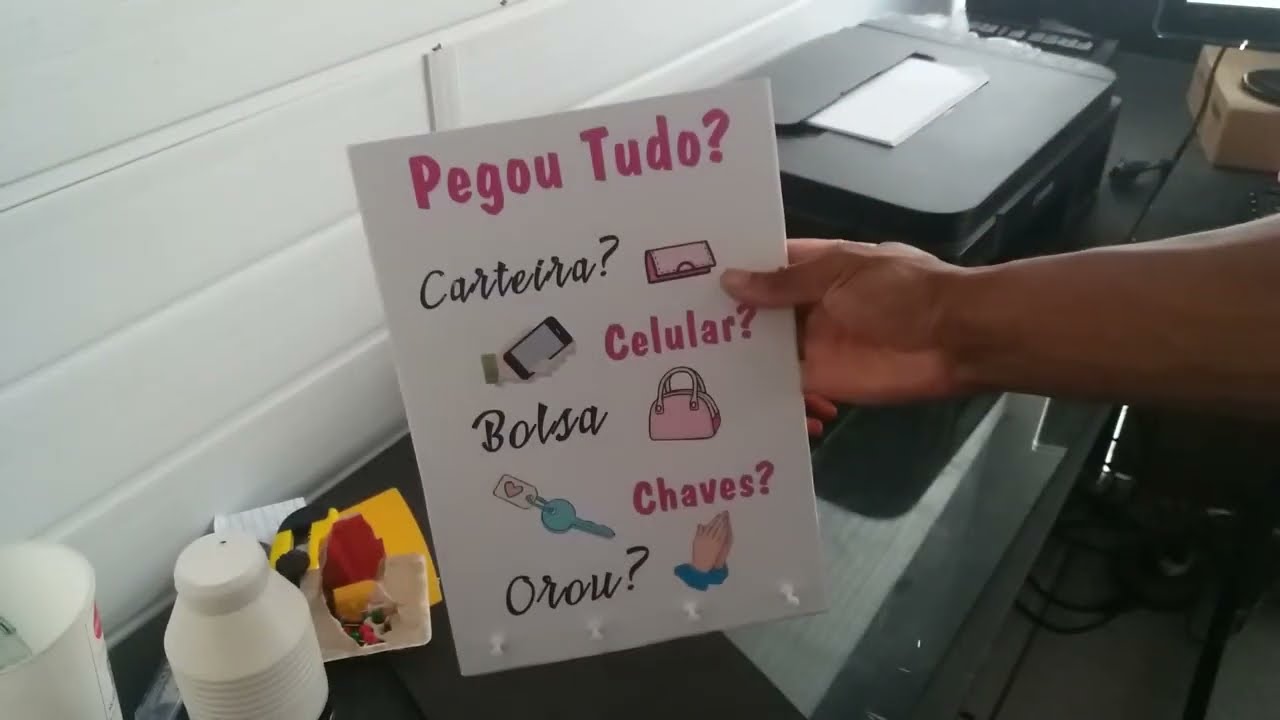 Pegou Tudo?
Carteira?
Celular?
Bolsa
Chaves?
Orou?